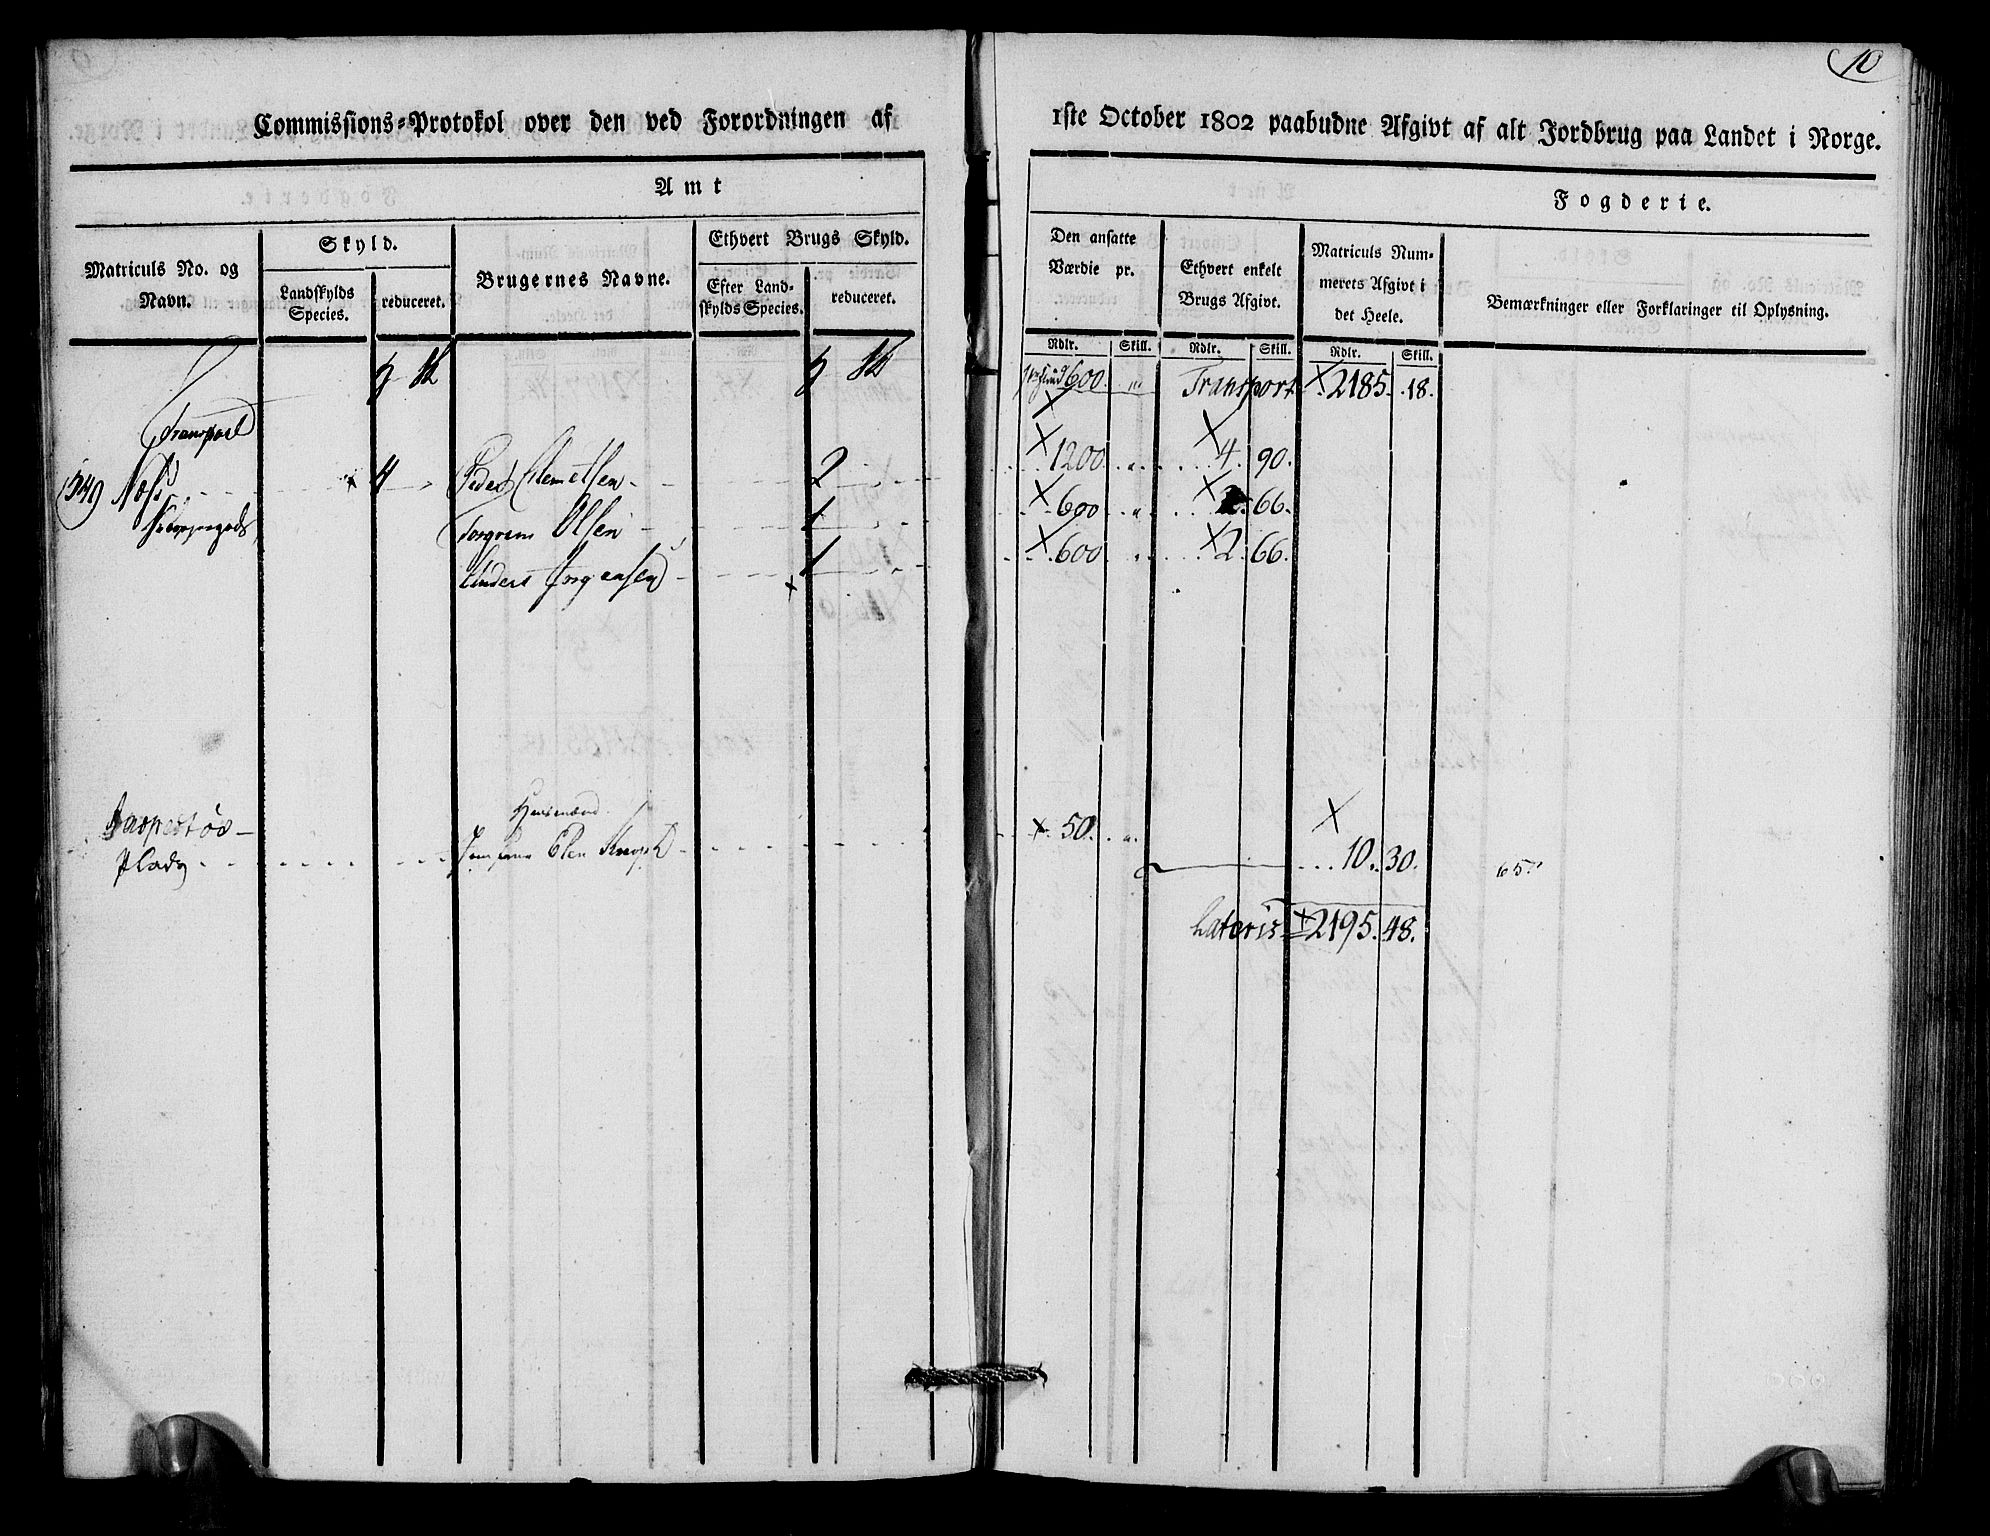 10
Commissions-Protokol over den ved Forordningen af 1ste October 1802 paabudne Afgivt af alt Jordbrug paa Landet i Norge.
Amt
Fogderie.
Matriculs No. og Navn.
Skyld.
Landskylds Species.
reduceret.
Brugernes Navne.
Ethvert Brugs Skyld.
Efter Landskylds Species.
reduceret.
Den ansatte Værdie pr.
Ethvert enkelt Brugs Afgivt.
Matriculs Nummerets Afgivt i det Heele.
Bemærkninger eller Forklaringer til Oplysning.
Rdlr. Skill. Rdlr. Skill. Rdlr. Skill.
600 Transport 2185. 18.
Transport
349 Næss 4 Peder Clemetsen 2 1200 4. 90.
Torgrim Olsen 1 600 2. 66.
Anders Jørgensen 1 600 2. 66.
Huusmænd
Jaspertøs 50.
Plads 10. 30. 65.
Lateris 2195. 48.